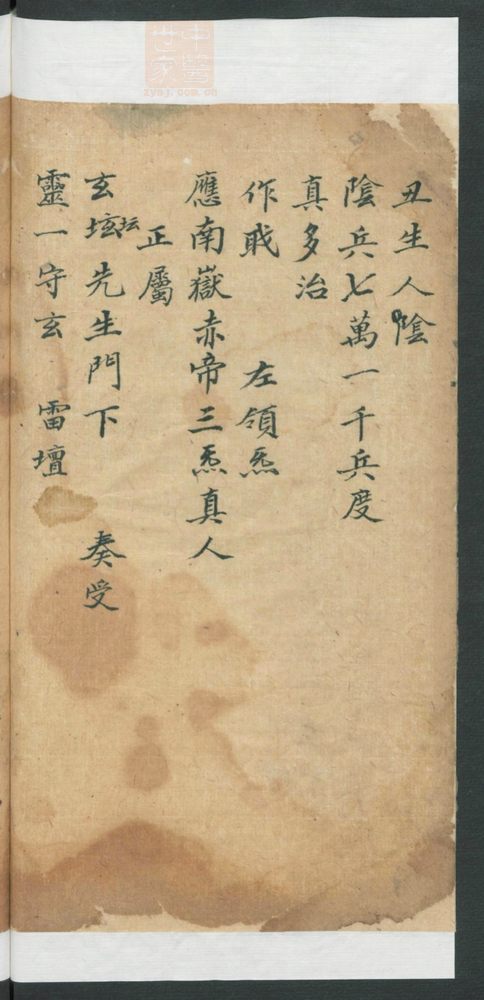 丑生人陰
陰兵七萬一千兵度
真多治
作戝 左領炁
應南嶽赤帝三炁真人
正屬
玄坛先生門下 奏受
靈一守玄 雷壇
中醫世家
zysj.com.cn